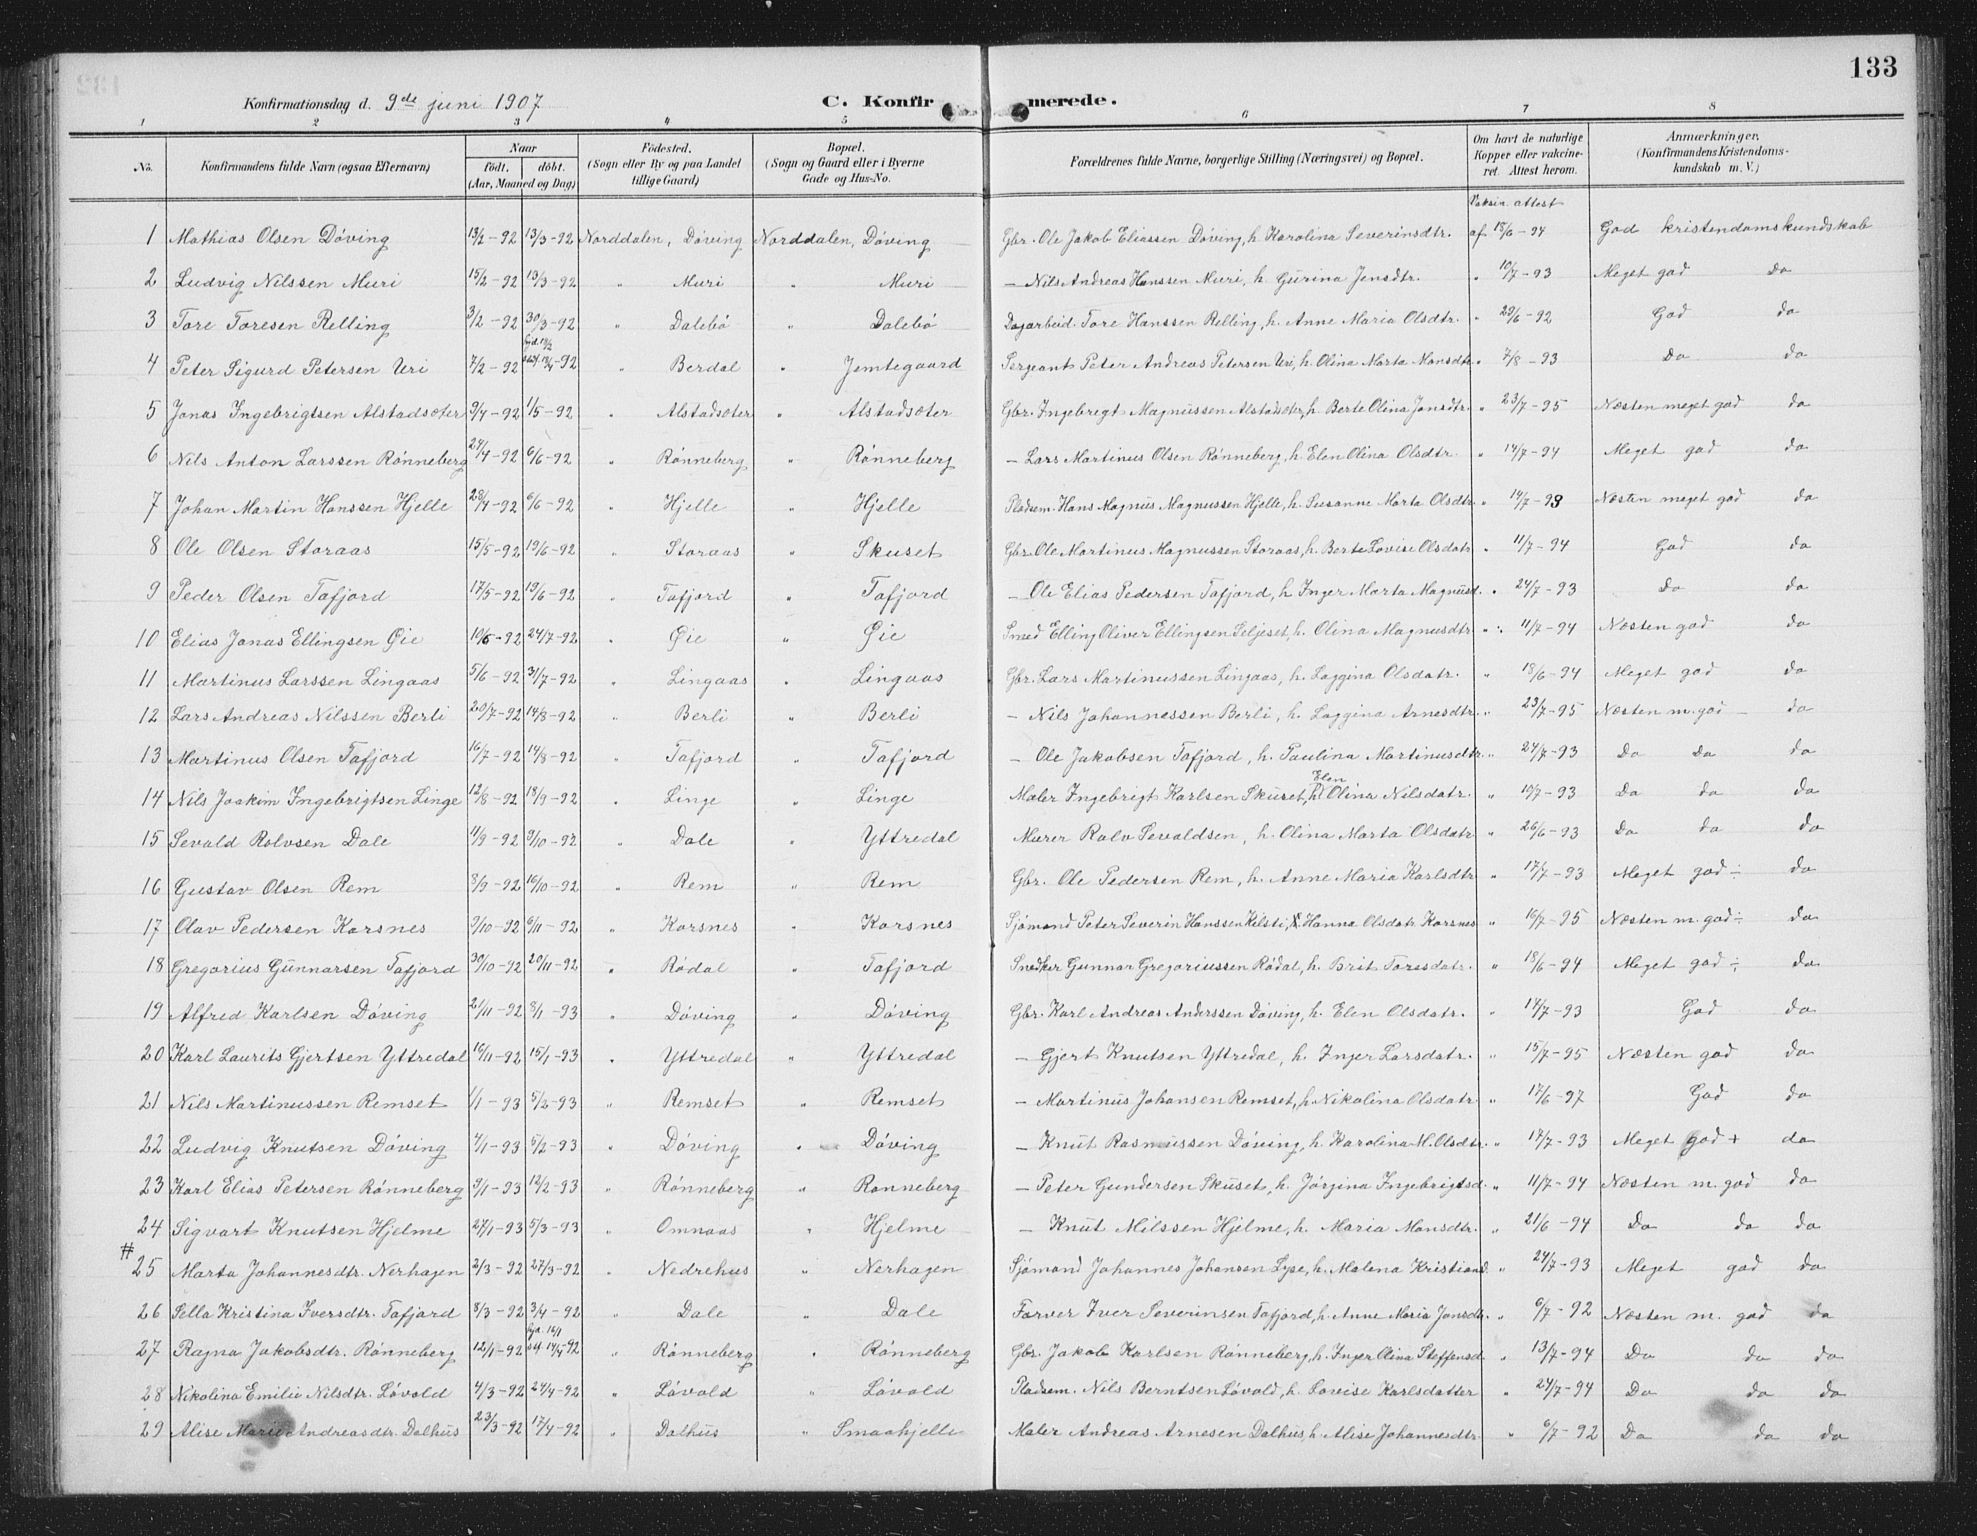 133
Konfirmationsdag d. 9de juni 1907 C. Konfirmerede.
1 2 3 4 5 6 7 8
No. Konfirmandens fulde Navn (ogsaa Efternavn) Naar født. døbt. (Aar, Maaned og Dag) Fødested. (Sogn eller By og paa Landet tillige Gaard) Bopæl. (Sogn og Gaard eller i Byerne Gade og Hus-No. Forældrenes fulde Navne, borgerlige Stilling (Næringsvei) og Bopæl. Om havt de naturlige Kopper eller vakcineret. Attest herom. Anmærkninger. (Konfirmandens Kristendomskundskab m. V.)
Vaksin. attest
1 Mathias Olsen Døving 13/2-92 13/3-92 Norddalen, Døving Norddalen, Døving Gbr. Ole Jakob Eliassen Døving, h. Karolina Severinsdtr. af 18/6-94 God kristendomskundskab
2 Ludvig Nilssen Muri 15/2-92 13/3-92 " Muri " Muri — Nils Andreas Hanssen Muri, h. Gurina Jensdtr. " 10/7-93 Meget god do
3 Tore Toresen Relling 3/2-92 30/3-92 " Dalebø " Dalebø Dagarbeid. Tore Hanssen Relling, h. Anne Maria Olsdtr. " 29/6-92 God do
4 Peter Sigurd Petersen Uri 7/2-92 " Berdal " Jemtegaard Sergeant Peter Andreas Petersen Uri, h. Olina Marta Monsdtr. " 7/8-93 Do do
5 Jonas Ingebrigtsen Alstadsæter 9/4-92 1/5-92 " Alstadsæter " Alstadsæter Gbr. Ingebregt Magnussen Alstadsæter, h. Berte Olina Jonsdtr. " 23/7-95 Næsten meget god do
6 Nils Anton Larssen Rønneberg 24/4-92 6/6-92 " Rønneberg " Rønneberg — Lars Martinus Olsen Rønneberg, h. Elen Olina Olsdtr. " 14/7-94 Meget god do
7 Johan Martin Hanssen Hjelle 28/4-92 6/6-92 " Hjelle " Hjelle Pladsem. Hans Magnus Magnussen Hjelle, h. Susanne Marta Olsdtr. " 14/7-93 Næsten meget god do
8 Ole Olsen Storaas 15/5-92 19/6-92 " Storaas " Skuset Gbr. Ole Martinus Magnussen Storaas, h. Berte Lovise Olsdatr. " 11/7-94 God do
9 Peder Olsen Tafjord 17/5-92 19/6-92 " Tafjord " Tafjord — Ole Elias Pedersen Tafjord, h. Inger Marta Magnusd. " 24/7-93 Do do
10 Elias Jonas Ellingsen Øie 10/6-92 24/7-92 " Øie " Øie Smed Elling Oliver Ellingsen Seljeset, h. Olina Magnusdtr. " 11/7-94 Næsten god do
11 Martinus Larssen Lingaas 5/6-92 31/7-92 " Lingaas " Lingaas Gbr. Lars Martinussen Lingaas, h. Laggina Olsdatr. " 18/6-94 Meget god do
12 Lars Andreas Nilssen Berli 20/7-92 14/8-92 " Berli " Berli — Nils Johannessen Berli, h. Laggina Arnesdtr. " 23/7-95 Næsten m. god — do
13 Martinus Olsen Tafjord 16/7-92 14/8-92 " Tafjord " Tafjord — Ole Jakobsen Tafjord, h. Paulina Martinusdtr. " 24/7-93 Do Do do
14 Nils Joakim Ingebrigtsen Linge 12/8-92 18/9-92 " Linge " Linge Maler Ingebrigt Karlsen Skuset, h. Elen Olina Nilsdatr. " 10/7-93 Do do do
15 Sevald Rolvsen Dale 11/9-92 9/10-92 " Dale " Yttredal Murer Rolv Sevaldsen, h. Olina Marta Olsdatr " 26/6-93 Do do do
16 Gustav Olsen Rem 8/9-92 16/10-92 " Rem " Rem Gbr. Ole Pedersen Rem, h. Anne Maria Karlsdtr " 17/7-93 Meget god ÷ do
17 Olav Pedersen Korsnes 9/10-92 6/11-92 " Korsnes " Korsnes Sjømand Peter Severin Hanssen Kilsti, Hanna Olsdatr Korsnes " 16/7-95 Næsten m. god ÷ do
18 Gregorius Gunnarsen Tafjord 30/10-92 20/11-92 " Rødal " Tafjord Snedker Gunnar Gregoriussen Rødal, h. Brit Toresdatr. " 18/6-94 Meget god ÷ do
19 Alfred Karlsen Døving 21/11-92 8/1-93 " Døving " Døving Gbr. Karl Andreas Anderssen Døving, h. Elen Olsdatr. " 14/7-93 God do
20 Karl Laurits Gjertsen Yttredal 16/11-92 15/1-93 " Yttredal " Yttredal — Gjert Knutsen Yttredal, h. Inger Larsdatr. " 15/7-95 Næsten god do
21 Nils Martinussen Remset 1/1-93 5/2-93 " Remset " Remset — Martinus Johansen Remset, h. Nikolina Olsdatr. " 17/6-97 God do
22 Ludvig Knutsen Døving 4/1-93 5/2-93 " Døving " Døving — Knut Rasmussen Døving, h. Karolina M. Olsdtr. " 17/7-93 Meget god + do
23 Karl Elias Petersen Rønneberg 9/1-93 12/2-93 " Rønneberg " Rønneberg — Peter Gundersen Skuset, h. Jørgina Ingebrigtsd. " 11/7-94 Næsten m. god do
24 Sigvart Knutsen Hjelme 27/1-93 5/3-93 " Omnaas " Hjelme — Knut Nilssen Hjelme, h. Maria Monsdtr. " 21/6-94 Do do do
# 25 Marta Johannesdtr. Nerhagen 2/3-92 27/3-92 " Nedrehus " Nerhagen Sjømand Johannes Johansen Lyse, h. Malena Kristiansd. " 24/7-93 Meget god do
26 Sella Kristina Iversdtr. Tafjord 8/3-92 3/4-92 " Dale " Dale Farver Iver Severinsen Tafjord, h. Anne Maria Jonsdtr. " 6/7-92 Næsten m. god do
27 Ragna Jakobsdtr. Rønneberg 12/1-92 " Rønneberg " Rønneberg Gbr. Jakob Karlsen Rønneberg, h. Inger Olina Steffensd. " 13/7-94 Do do do
28 Nikolina Emilie Nilsdtr. Løvold 4/3-92 24/4-92 " Løvold " Løvold Pladsem. Nils Berntsen Løvold, h. Lovise Karlsdatter " 24/7-94 Do do do
29 Alise Marie Andreasdtr. Dalhus 23/3-92 17/4-92 " Dalhus " Smaahjelle Maler Andreas Arnesen Dalhus, h. Alise Johannesdtr. " 6/7-92 Do do do